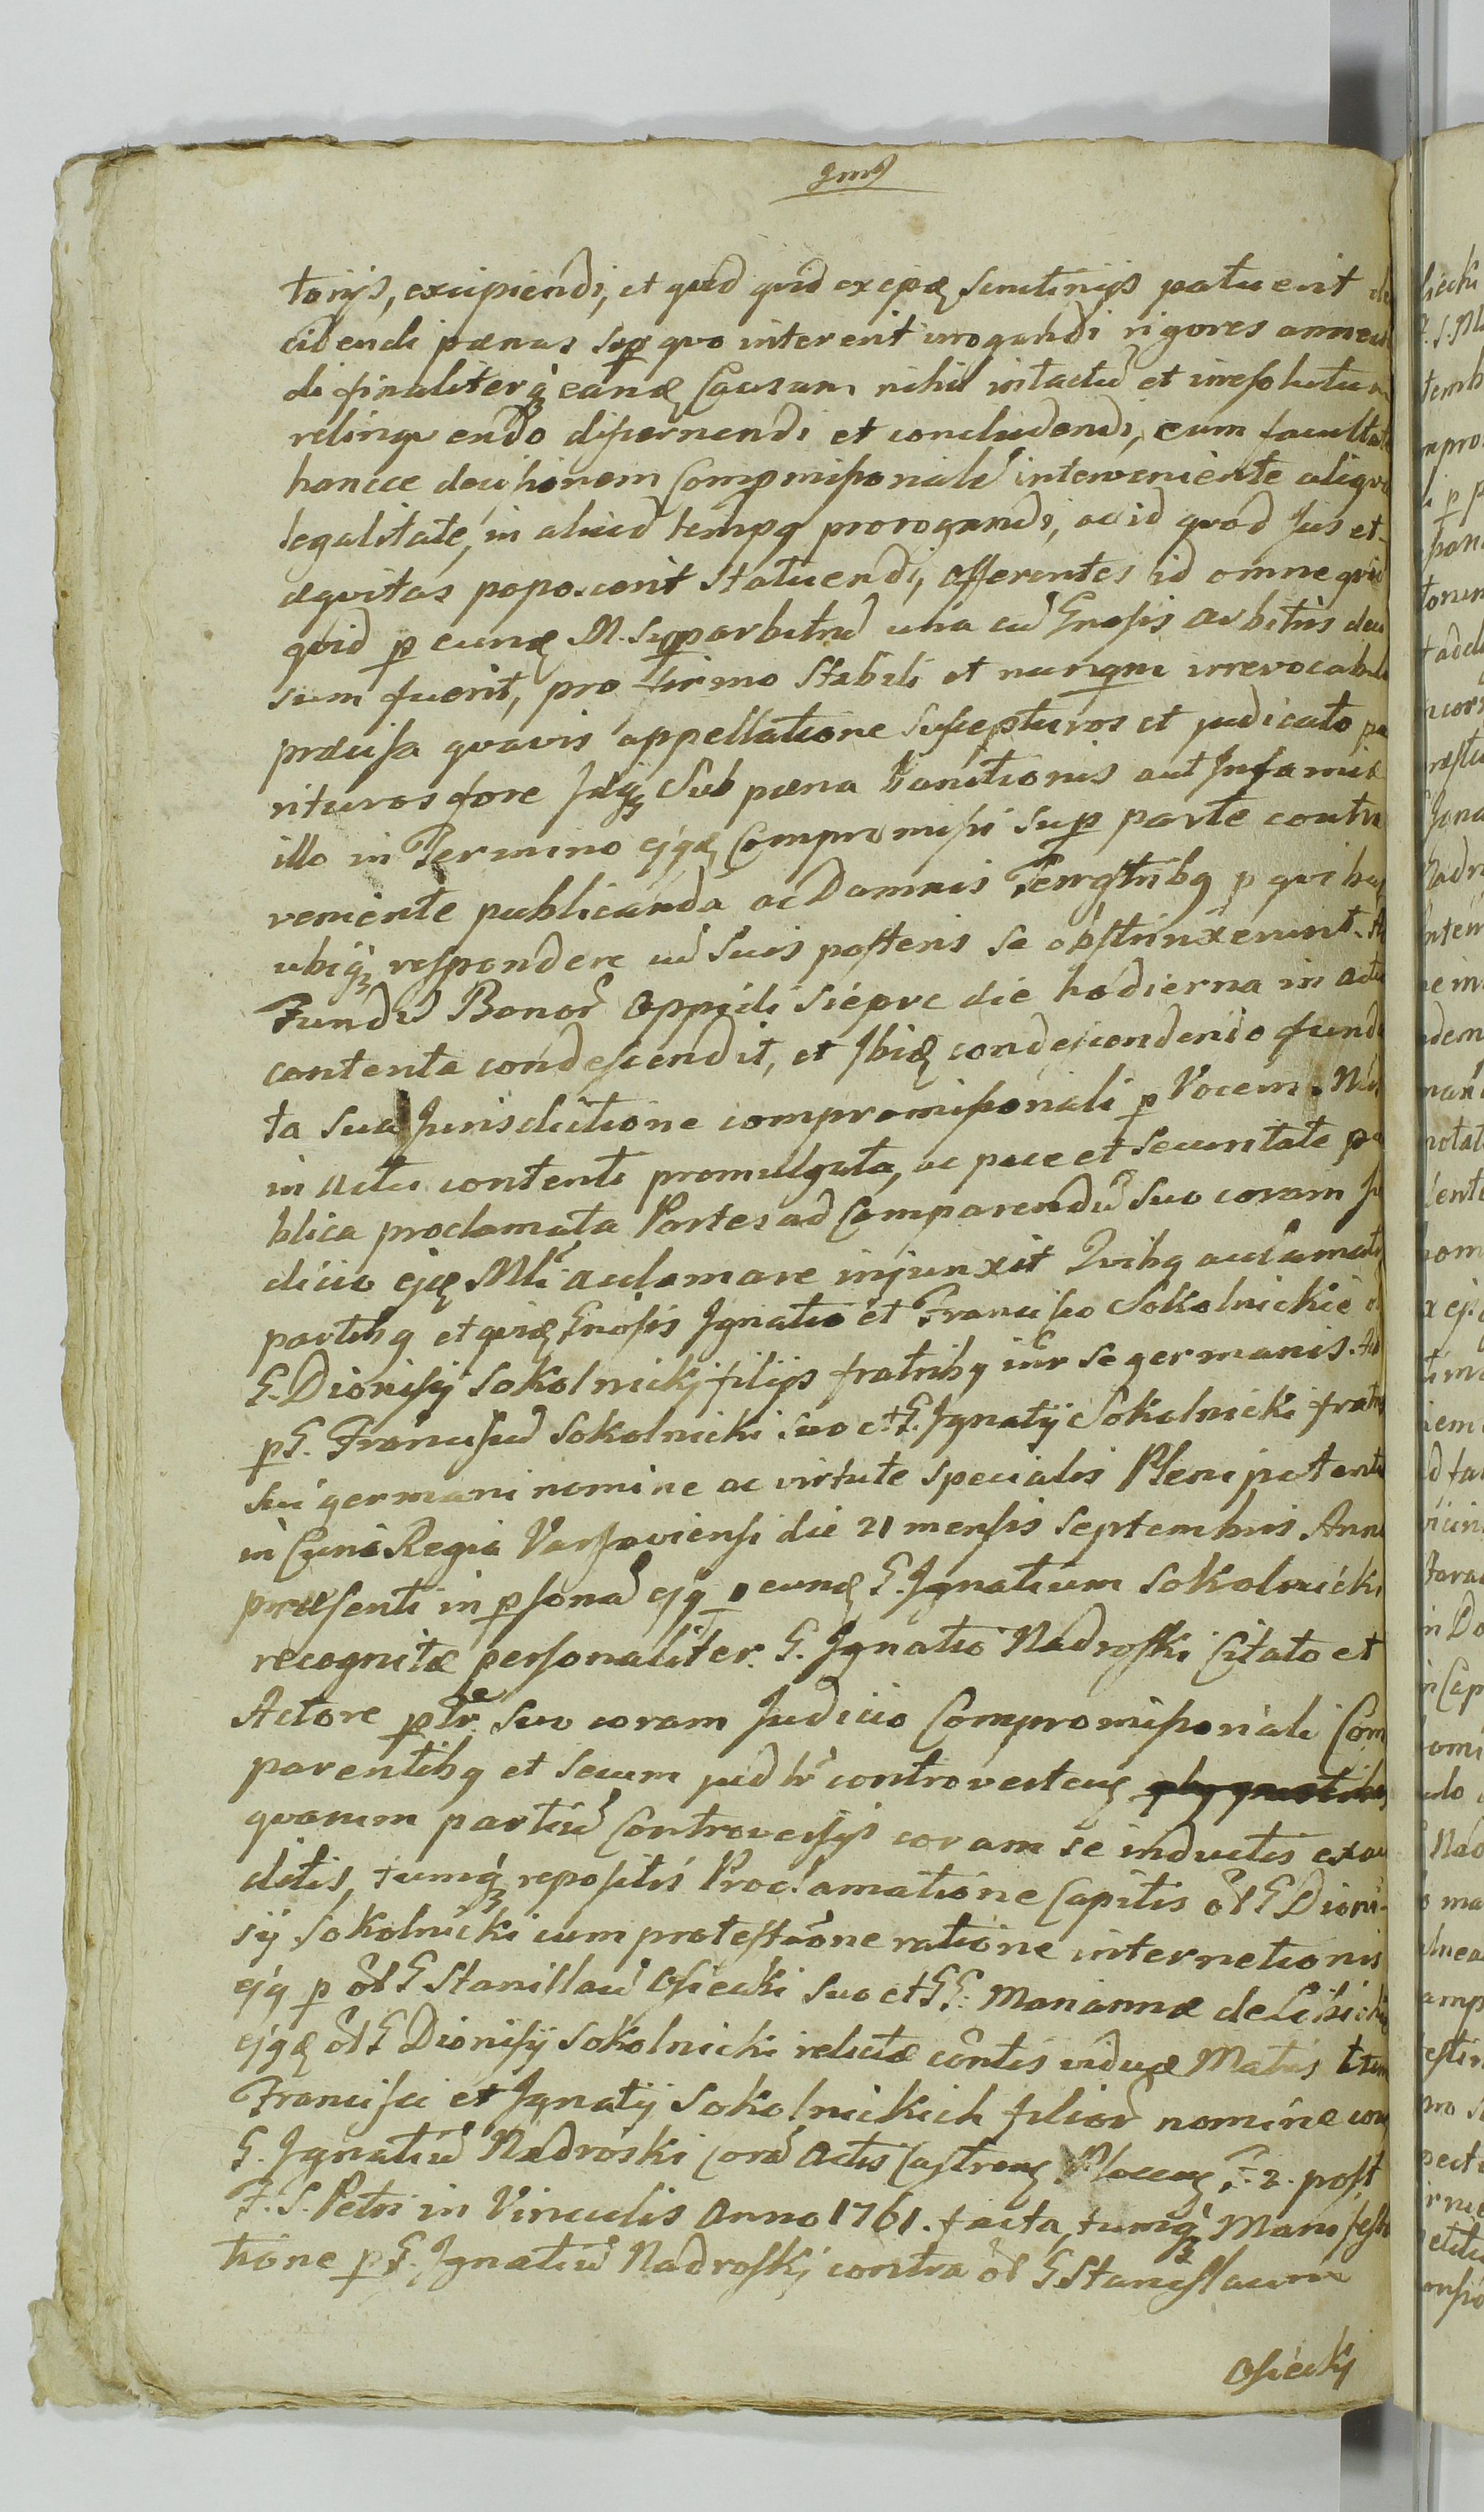 torijs, excipiendi, et quid quid ex ejsdem scrutinijs patuerit
cidendi pænas super quo intererit irrogandi rigores annect
di finaliterq₃ eandem Causam nihil intactũ et irresolutum
relinquendo discernendi et concludendi, cum facultate
hancce decisionem Compromissionalẽ interveniente aliqva
legalitate, in aliud tempq prorogandi, ac id qvod Jus et
æqvitas poposcerit statuendi, Offerentes id omne qvid
qvid p eundem M. Superarbitrũ una cũ Gnrosis Arbitris deci
sum fuerit, pro firmo Stabili et nunqm irrevocabili
præcisa qvavis appellatione suscepturos et judicato pa
rituros fore Jdq₃ Sub pæna bannitionis aut Infamiæ
illo in Termino ejqdem Compromissi super parte contra
veniente publicanda ac Damnis Terrgtribq p qvibus
ubiq₃ respondere cũ Suis posteris se obstrinxerunt. Ad
Fundũ Bonorũ Oppidi Sierpc die hodierna in actu
contenta condescendit, et Jbidem condescendendo funda
ta sua Jurisdictione compromissionali p Vocem Mini
in actu contenti promulgata, ac pace et securitate pu
blica proclamata Partes ad Comparendũ Suo coram Ju
dicio ejdem Mli acclamare injunxit Qvibq acclamatis
partibq et qvidem Gnrosis Jgnatio et Francisco Sokolnickie
G. Dionisij Sokolnickj filijs fratribq inr Se germanis. Ad
p G. Franciscũ Sokolnicki suo et G. Jgnatij Sokolnicki fratris
Sui germani nomine ac virtute specialis Plenipotentiæ
in Curia Regia Varsaviensi die 21 mensis Septembris Anno
præsenti in psonã ejq p eundem G. Jgnatium Sokolnicki
recognitæ personaliter. G. Jgnatio Nadroski Citato et
Actore pltr. suo coram Judicio Compromissionali Com
parentibq et secum judlr controverten
qvorum partiũ Controversijs coram se inductis exau
ditis, tumq₃ repositis Proclamatione Capitis ol G Dioni-
sij Sokolnicki cum protestaone ratione internetionis
ejq p ol G Stanislaũ Osiecki suo et GG. Mariannæ de
ejqdem ol G Dionisij Sokolnicki relictæ contis viduæ Matris ttum
Francisci et Jgnatij Sokolnickich filiorũ nomine con
G. Jgnatiũ Nadroski Corã Actis Castren Plocen F. 2. post
F. S. Petri in Vinculis Anno 1761. facta, tumq₃ Manifesta
tione p G. Jgnatiũ Nadroskj contra ol G Stanislaum
Osieckj